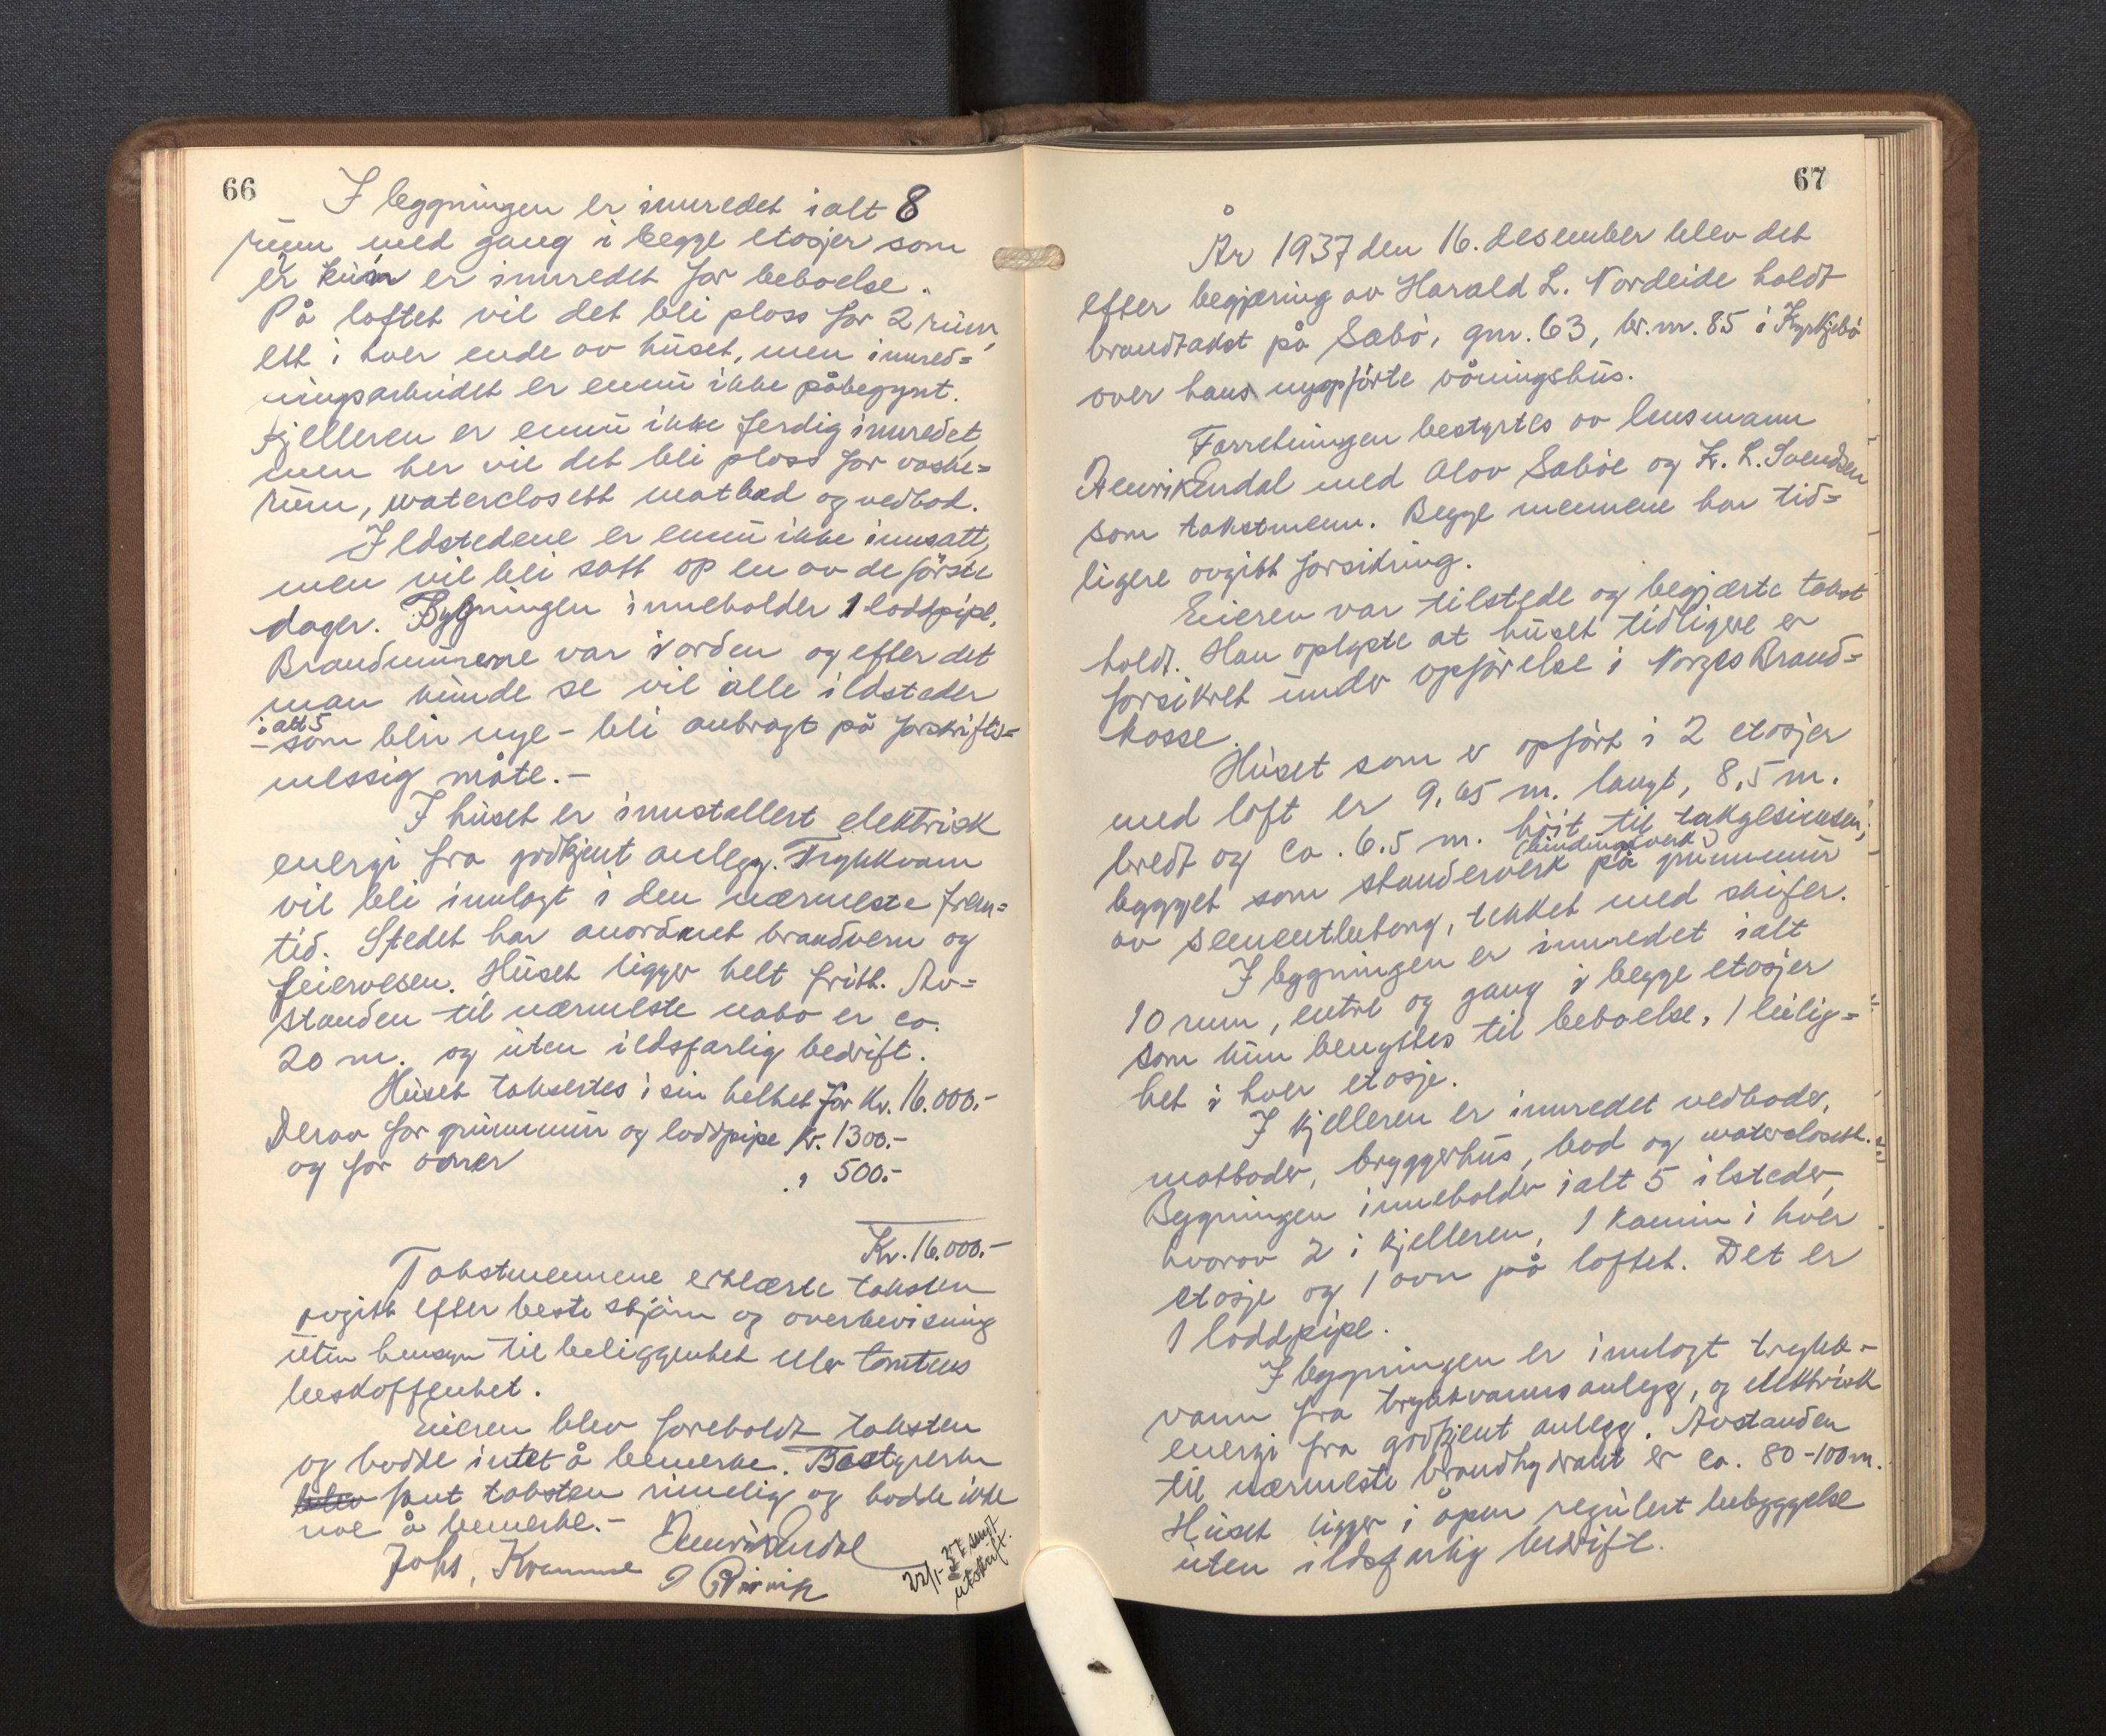 66
I byggningen er innredet ialt 8
rum med gang i begge etasjer som
er kun er innredet for beboelse.
På loftet vil det bli plass for 2 rum,
ett i hver ende av huset, men innred=
ningsarbeidet er ennu ikke påbegynt.
Kjelleren er ennu ikke ferdig innredet,
men her vil det bli plass for vaske=
rum, watercloset matbod og vedbod.
Ildstedene er ennu ikke innsatt,
men vil bli satt op en av de første
dager. Bygningen inneholder 1 loddpipe.
Brandmurene var i orden og efter det
man kunde se vil alle ildsteder
ialt 5
- som blir nye - bli anbragt på forskrifts=
messig måte.-
I huset er innstallert elektrisk
energi fra godkjent anlegg. Trykkvann
vil bli innlagt i den nærmeste frem=
tid. Stedet har anordnet brandvern og
feiervesen. Huset ligger helt fritt. Av=
standen til nærmeste nabo er ca.
20 m. og uten ildsfarlig bedrift.
Huset takseres i sin helhet for Kr. 16.000.-
Derav for grunnmur og loddpipe Kr. 1300.-
og for ovner
" 500.-
Kr. 16.000.-
Takstmennene erklærte taksten
avgitt efter beste skjønn og overbevisning
uten hensyn til beliggenhet eller tomtens
beskaffenhet.
Eieren blev foreholdt taksten
og hadde intet å bemerke. Bestyreren
blev fant taksten rimelig og hadde ikke
noe å bemerke.-
Henrik Endal
Johs. Kvamme
22/1-37 sendt
utskrift.
67
År 1937 den 16. desember blev det
efter begjæring av Harald L. Nordeide holdt
brandtakst på Sæbö, gnr. 63, br.nr. 85 i Kyrkjebö
over hans nyopførte våningshus.
Forretningen bestyrtes av lensmann
Henrik Endal med Olav Sæbøe og Kr. L. Svendsen
som takstmenn. Begge mennene har tid=
ligere avgitt forsikring.
Eieren var tilstede og begjærte takst
holdt. Han oplyste at huset tidligere er
forsikret under opførelse i Norges Brand=
kasse.
Huset som er opført i 2 etasjer
med loft er 9,65 m. langt, 8,5 m.
bredt og ca. 6.5 m. höit til takgesimsen;
(bindingsverk)
bygget som standerverk på grunnmur
av sementbetong, tekket med skifer.
I bygningen er innredet ialt
10 rum, entré og gang i begge etasjer
som kun benyttes til beboelse, 1 leilig=
het i hver etasje.
I kjelleren er innredet vedboder,
matboder, bryggerhus, bod og watercloset.
Bygningen inneholder ialt 5 ilsteder,
hvorav 2 i kjelleren, 1 kamin i hver
etasje og 1 ovn på loftet. Det er
1 loddpipe.
I bygningen er innlagt trykk-
vann fra trykkvannsanlegg, og elektrisk
energi fra godkjent anlegg. Avstanden
til nærmeste brandhydrant er ca. 80-100 m.
Huset ligger i åpen regulert bebyggelse
uten ildsfarlig bedrift.